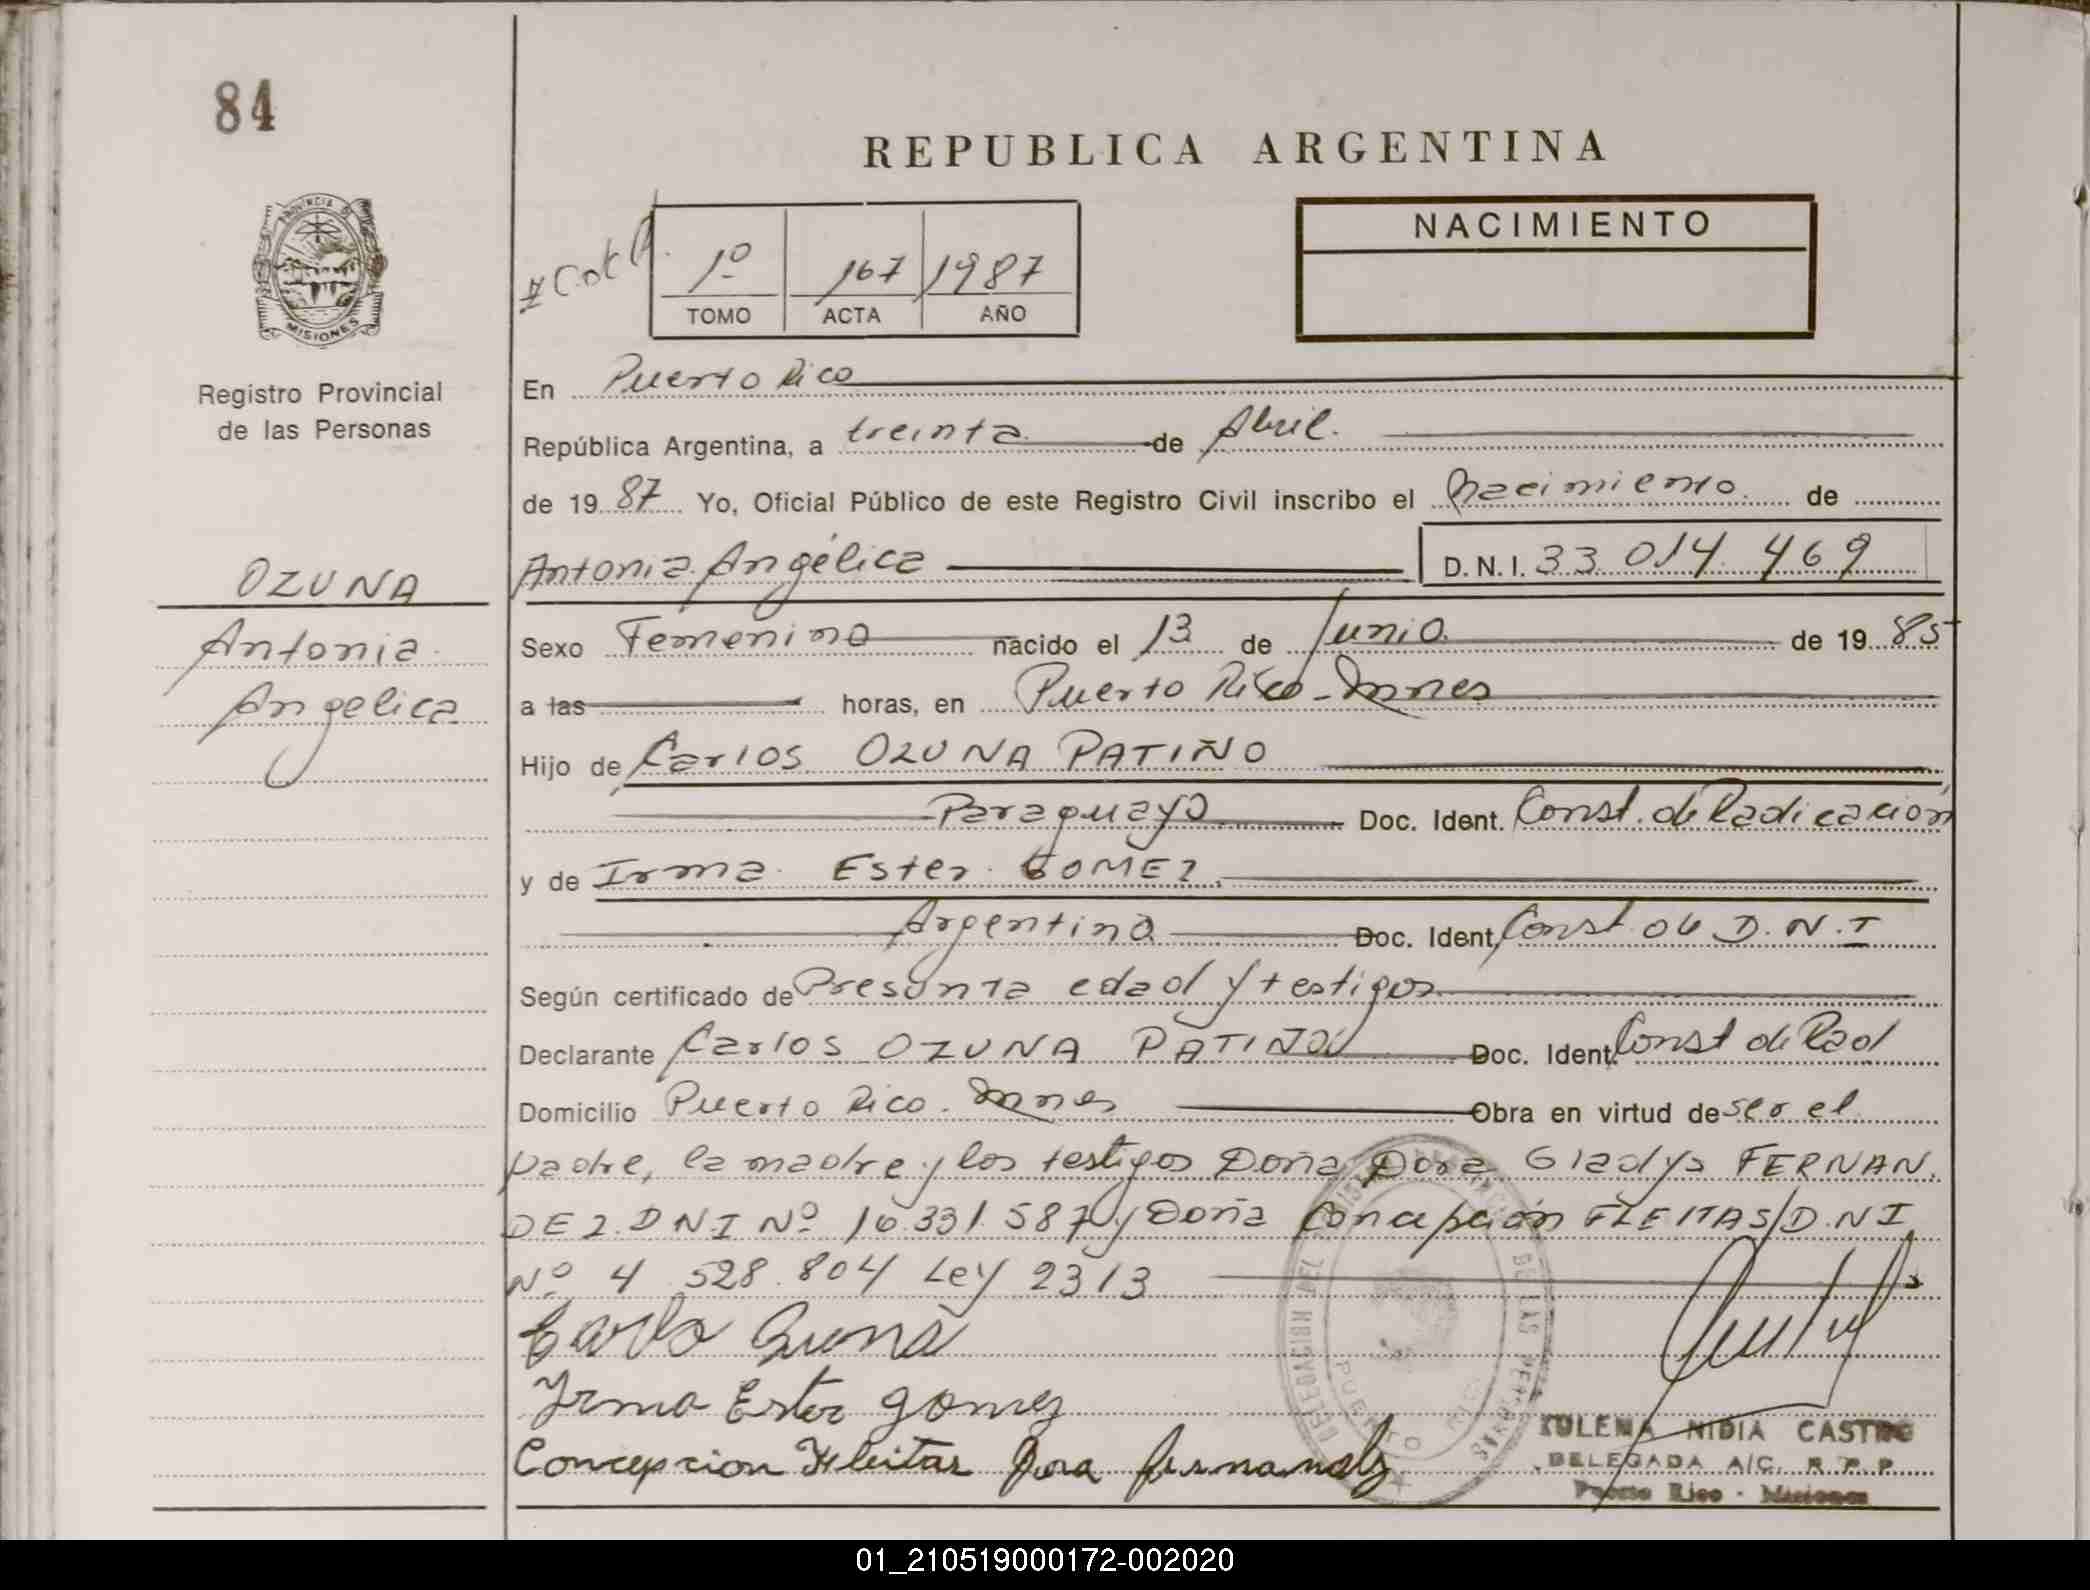 84
REPUBLICA ARGENTINA
PROVINCIA DE
MISIONES
Registro Provincial
de las Personas
1º 167 1987
TOMO ACTA AÑO
NACIMIENTO
En Puerto Rico
República Argentina, a treinta de Abril.
de 1987 Yo, Oficial Público de este Registro Civil inscribo el Nacimiento de
OZUNA
Antonia
Angelica
Antonia Angélica D.N.I. 33.014.469
Sexo Femenino nacido el 13 de Junio de 1985
a las horas, en Puerto Rico - Mnes
Hijo de Carlos OZUNA PATIÑO
Paraguayo Doc. Ident. Const. de Radicación
y de Irma Ester GOMEZ
Argentina Doc. Ident. Const. D.N.I
Según certificado de Presunta edad y testigos
Declarante Carlos OZUNA PATIÑO Doc. Ident. Const de Rad
Domicilio Puerto Rico - Mnes Obra en virtud de ser el
padre, la madre y los testigos Doña Dora Gladys FERNAN.
DEZ. DNI Nº 16.331.587 y Doña Concepción FLEITAS/D.N.I
Nº 4.528.804 Ley 2313
Carlos Ozuna
Irma Ester gomez
Concepcion Fleitas Dora fernandez
DELEGACION DEL DE LAS PERSONAS
PUERTO RICO
NIDIA CASTRO
DELEGADA A/C. R.P.P.
Puerto Rico - Misiones
01_210519000172-002020